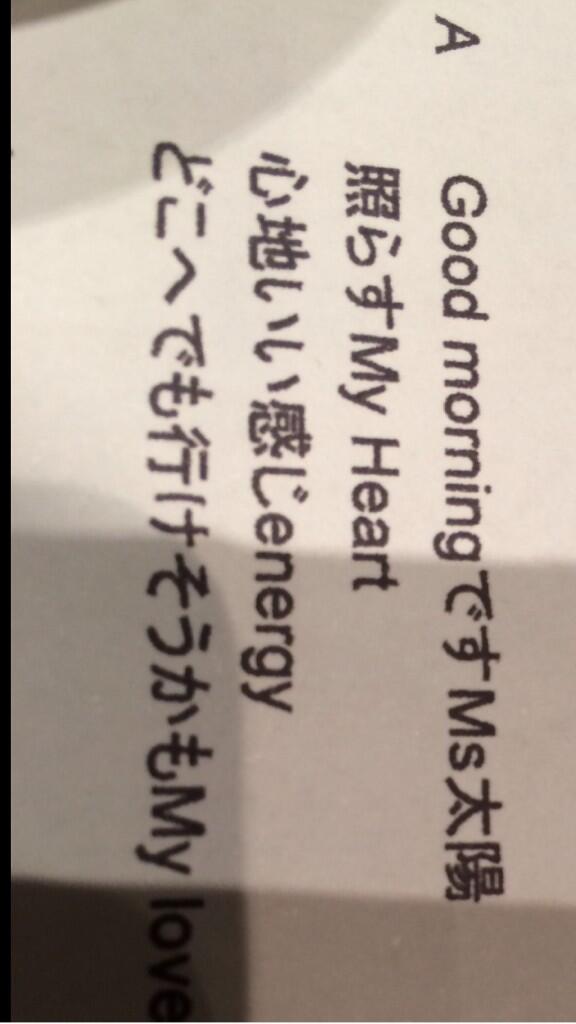 A
Good morningですMs太陽
照らすMy Heart
心地いい感じenergy
どこへでも行けそうかもMy love